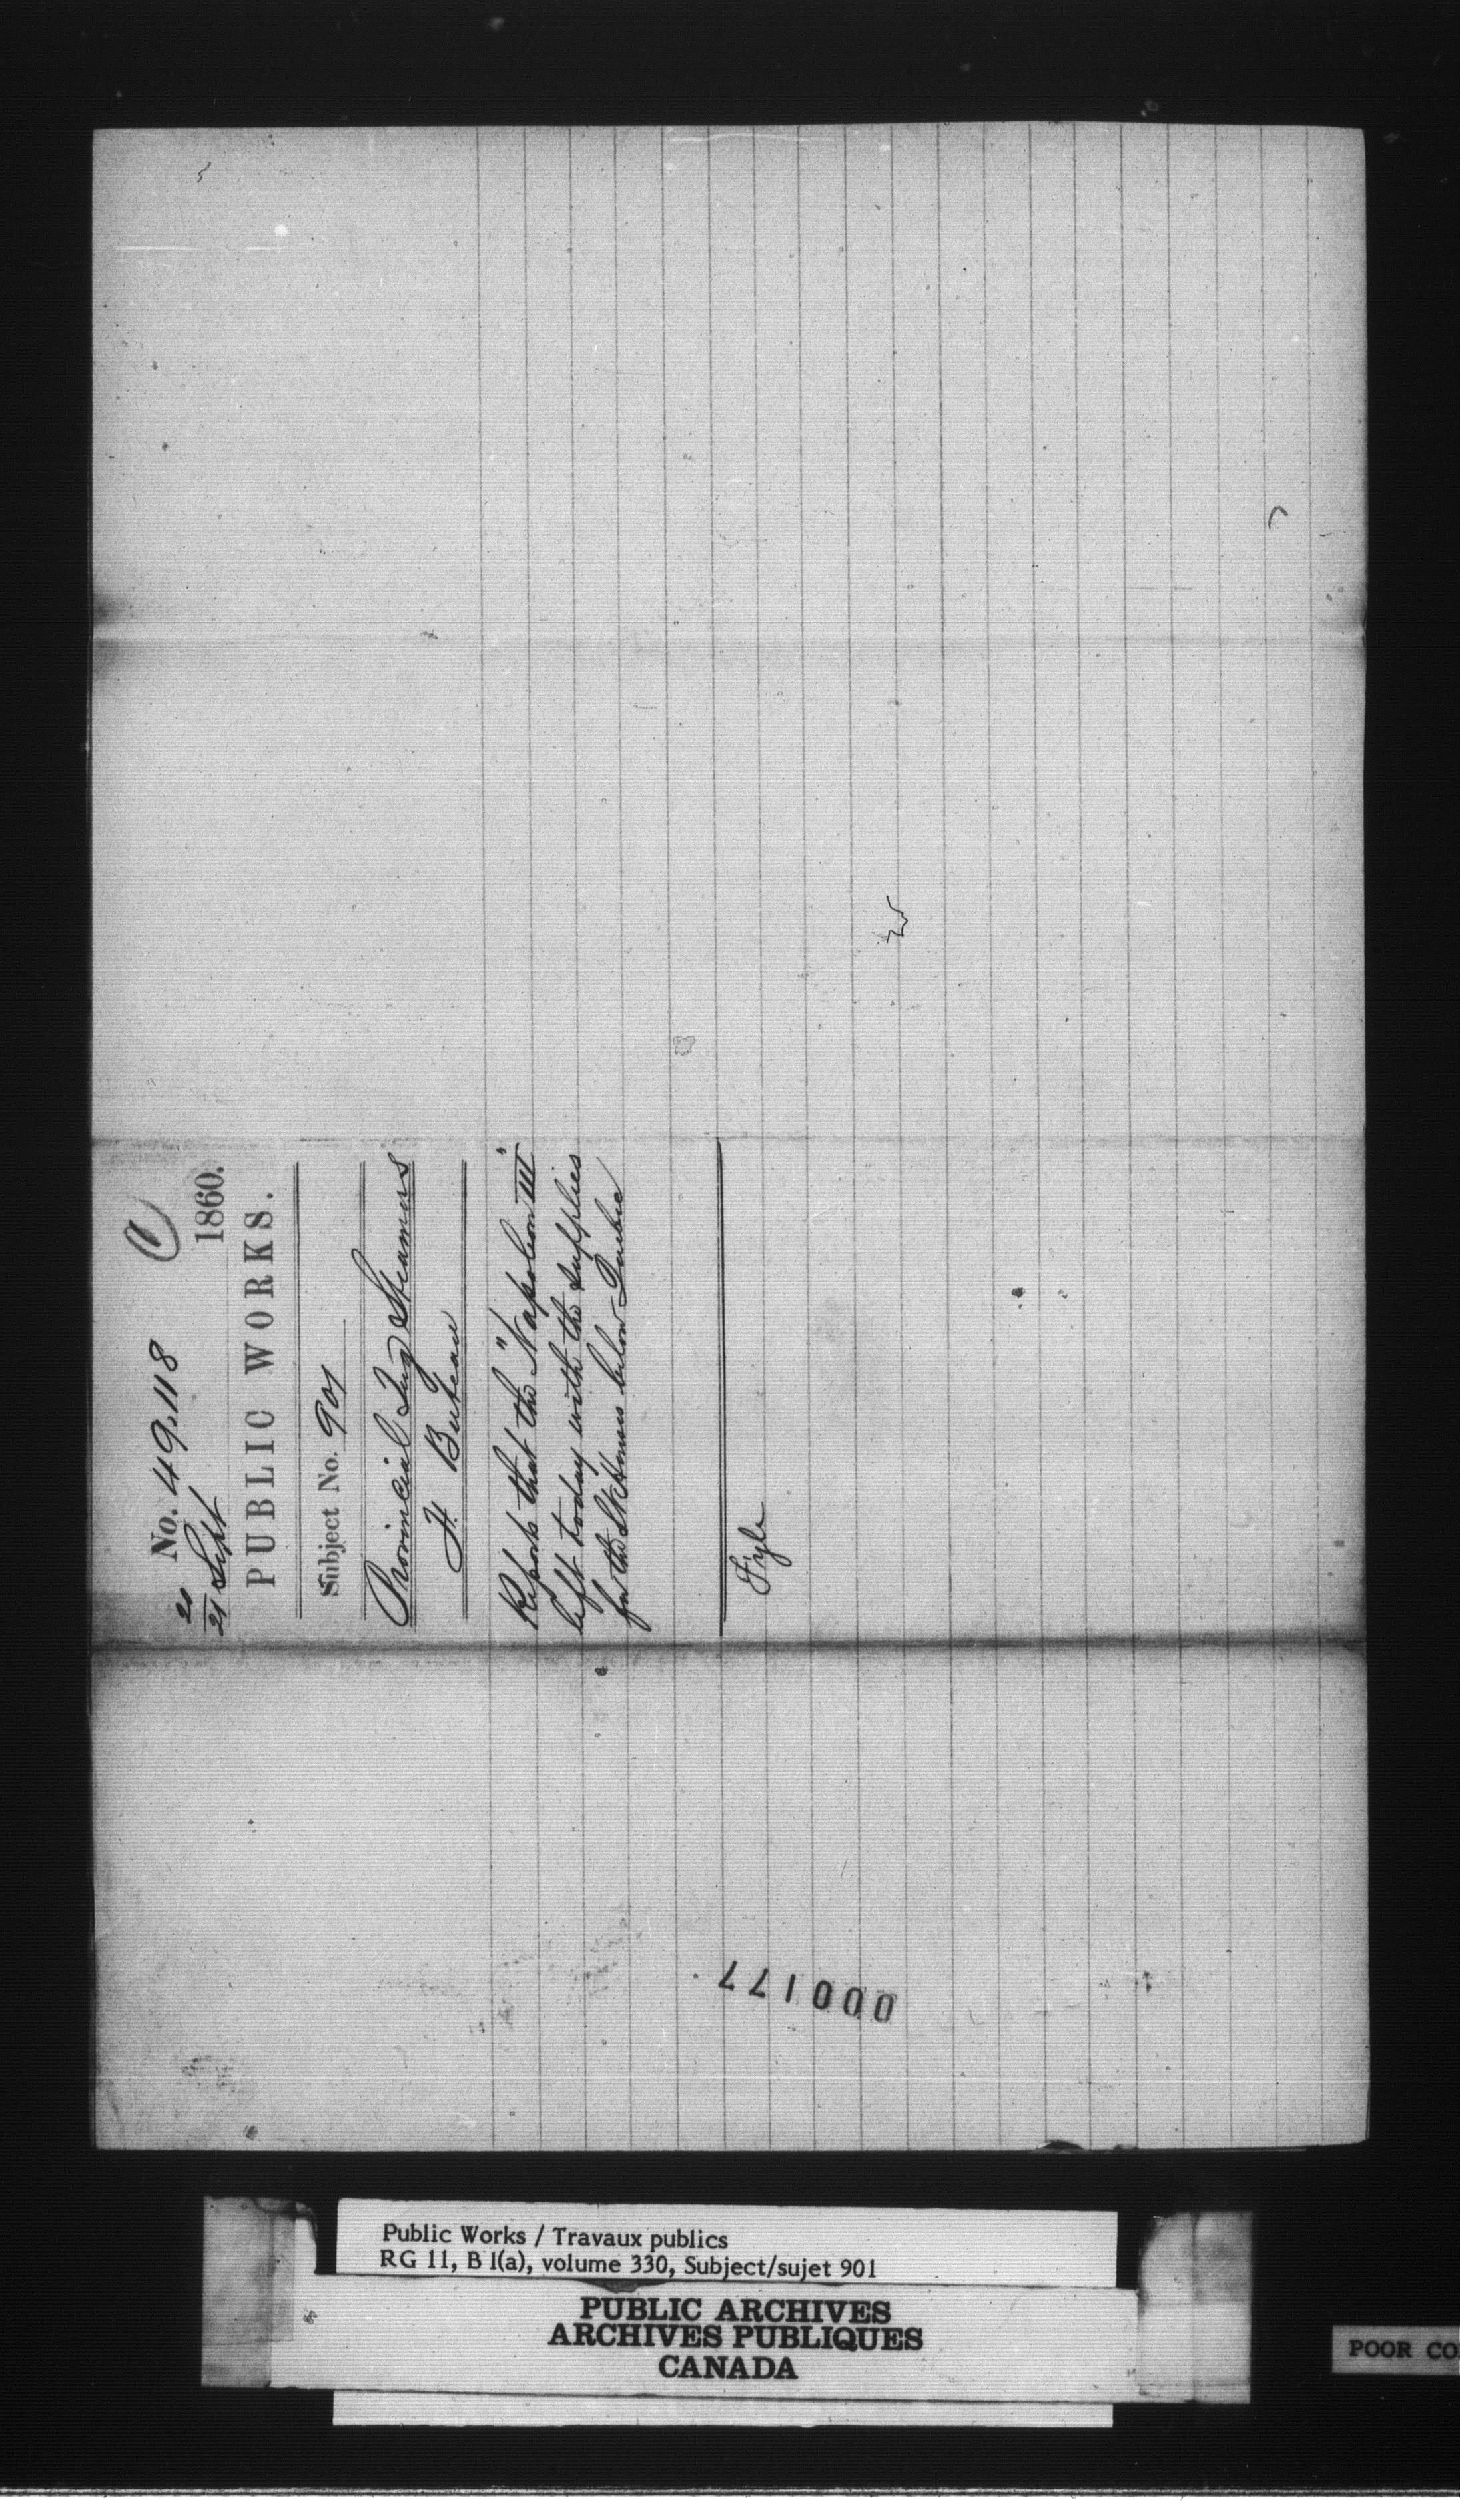 No. 49,118
20
21 Sept 1860.
PUBLIC WORKS.
Subject No. 901
Provincial Tug Steamers
F. Buteau
Reports that the "Napoleon III"
left today with the supplies
for the Lt Houses below Quebec
Fyle
000177
Public Works / Travaux publics
RG 11, B 1(a), volume 330, Subject/sujet 901
PUBLIC ARCHIVES
ARCHIVES PUBLIQUES
CANADA
POOR CO